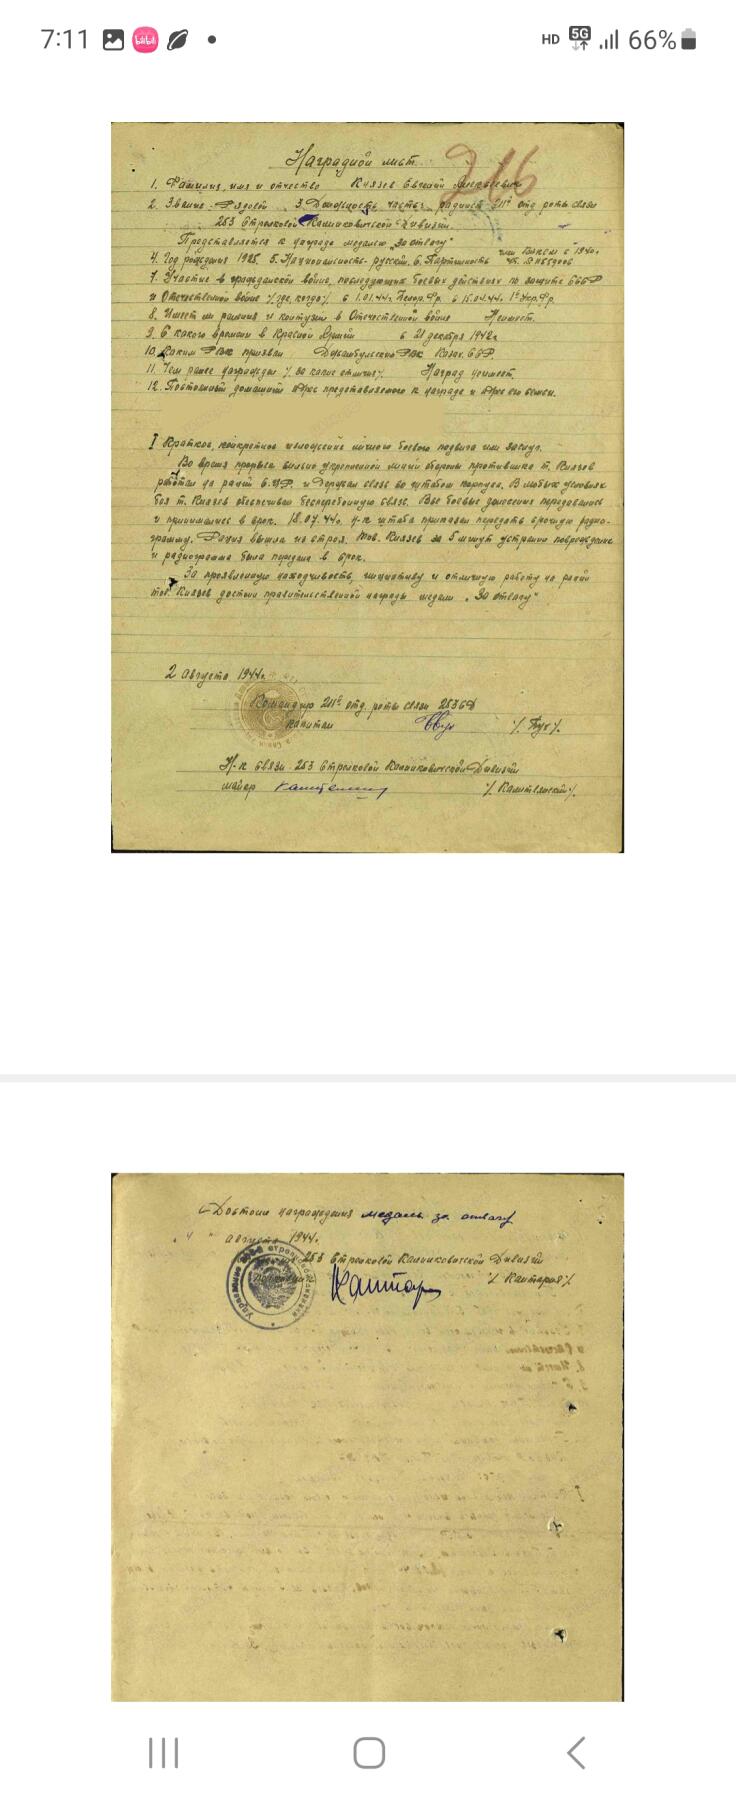 7:11
HD 5G 66%
216
Наградной лист
1. Фамилия, имя и отчество Князев Евгений Алексеевич
2. Звание Рядовой 3. Должность, часть радист 211й отд. роты связи
253 Стрелковой Калинковичской Дивизии.
Представляется к награде медалью "За отвагу"
член ВЛКСМ с 1940г.
4. Год рождения 1925. 5. Национальность русский. 6. Партийность
7. Участие в гражданской войне, последующих боевых действиях по защите СССР
и Отечественной войне /где, когда/ с 1.01.44г. Белор. Фр. с 15.04.44г. 1й Укр. Фр.
8. Имеет ли ранения и контузии в Отечественной войне Неимеет.
9. С какого времени в Красной Армии с 21 декабря 1942г.
10. Каким РВК призван Джамбульским РВК Казах. ССР.
11. Чем ранее награжден /за какие отличия/. Наград неимеет.
12. Постоянный домашний адрес представляемого к награде и адрес его семьи.
I Краткое, конкретное изложение личного боевого подвига или заслуг.
Во время прорыва сильно укрепленной линии обороны противника т. Князев
работал на рации 6-ПР. и держал связь со штабом корпуса. В любых условиях
боя т. Князев обеспечивал бесперебойную связь. Все боевые донесения передавались
и принимались в срок. 18.07.44г. н-к штаба приказал передать срочную радио-
грамму. Рация вышла из строя. Тов. Князев за 5 минут устранил повреждение
и радиограмма была передана в срок.
За проявленную находчивость, инициативу и отличную работу на рации
тов. Князев достоин правительственной награды медали "За отвагу"
2 августа 1944г.
Командир 211й отд. роты связи 253СД
капитан /Бук/.
Н-к связи 253 Стрелковой Калинковичской Дивизии
майор /Капителский/.
Достоин награждения медаль за отвагу
"4" августа 1944г.
253 Стрелковой Калинковичской Дивизии
/Кантария/
Управление 253-й стрелковой дивизии